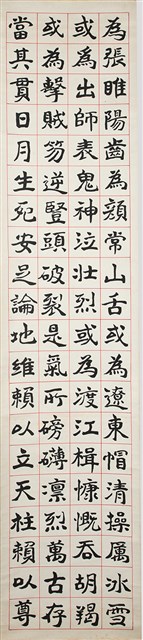 為張睢陽齒為顏常山舌或為遼東帽清操厲冰雪
或為出師表鬼神泣壯烈或為渡江楫慷慨吞胡羯
或為擊賊笏逆豎頭破裂是氣所磅礴凛烈萬古存
當其貫日月生死安足論地維賴以立天柱賴以尊